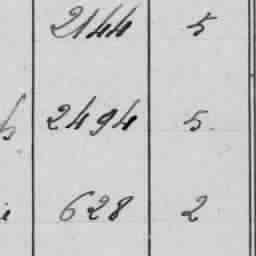 2144 5
2494 5.
628 2